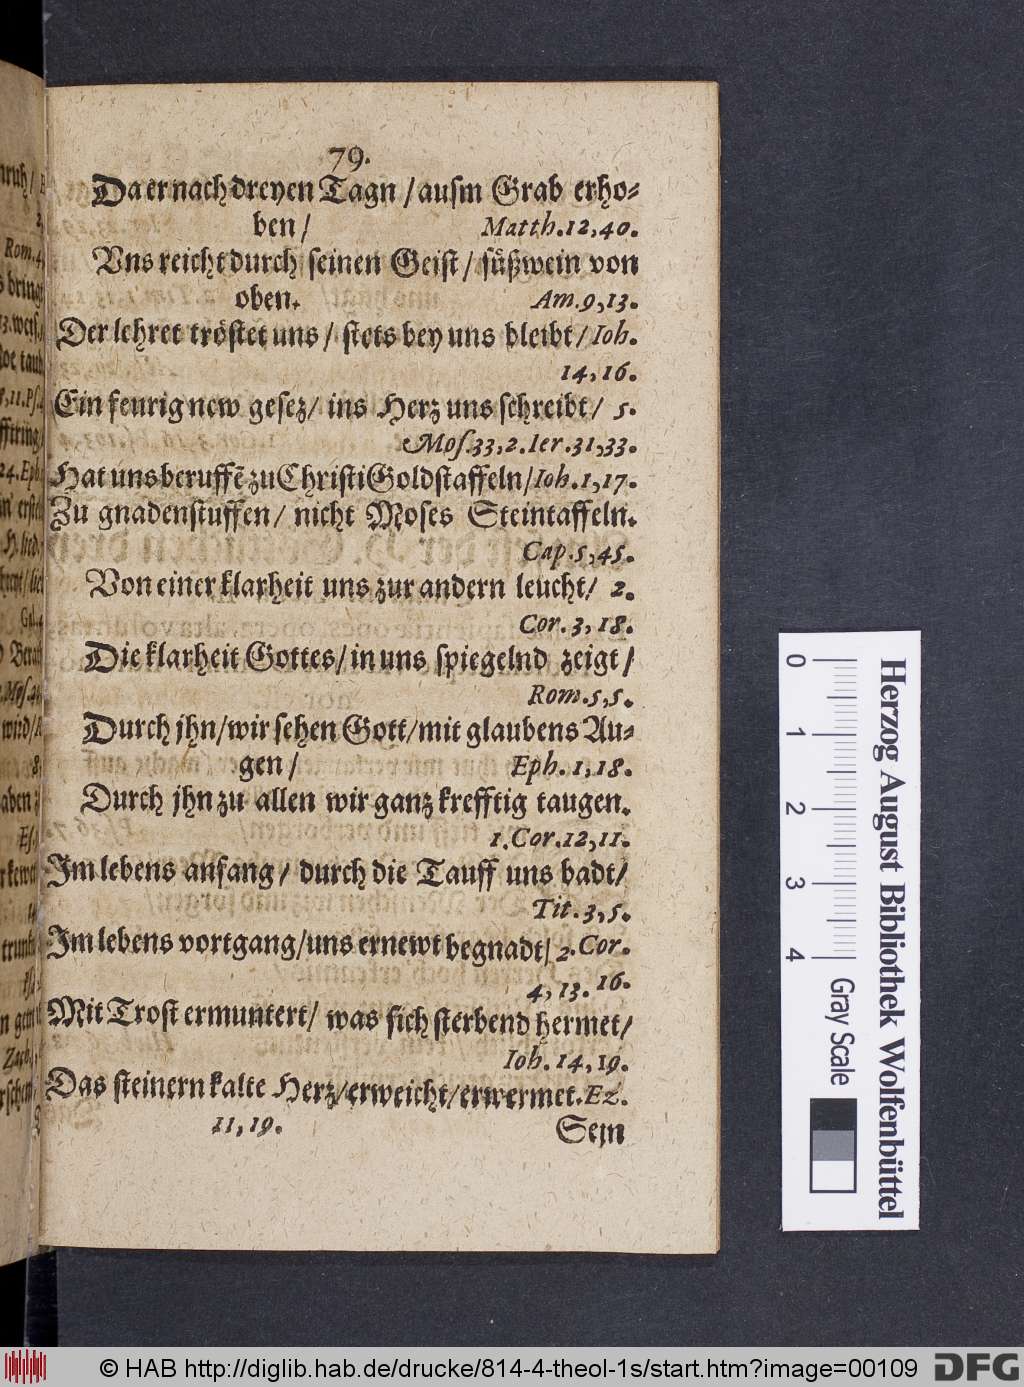 79.
Da er nach dreyen Tagn / ausm Grab erho-
ben / Matth. 12, 40.
Vns reicht durch seinen Geist / süßwein von
oben. Am. 9, 13.
Der lehret tröstet uns / stets bey uns bleibt / Ioh.
14, 16.
Ein feurig new gesez / ins Herz uns schreibt / 5.
Mos. 33, 2. Ier. 31, 33.
Hat uns beruffẽ zu Christi Goldstaffeln / Ioh. 1, 17.
Zu gnadenstuffen / nicht Moses Steintaffeln.
Cap. 5, 45.
Von einer klarheit uns zur andern leucht / 2.
Cor. 3, 18.
Die klarheit Gottes / in uns spiegelnd zeigt /
Rom. 5, 5.
Durch jhn / wir sehen Gott / mit glaubens Au-
gen / Eph. 1, 18.
Durch jhn zu allen wir ganz krefftig taugen.
1. Cor. 12, 11.
Im lebens anfang / durch die Tauff uns badt /
Tit. 3, 5.
Im lebens vortgang / uns ernewt begnadt / 2. Cor.
4, 13. 16.
Mit Trost ermuntert / was sich sterbend hermet /
Ioh. 14, 19.
Das steinern kalte Herz / erweicht / erwermet. Ez.
11, 19. Sein
Herzog August Bibliothek Wolfenbüttel
0 1 2 3 4
Gray Scale
© HAB http://diglib.hab.de/drucke/814-4-theol-1s/start.htm?image=00109
DFG